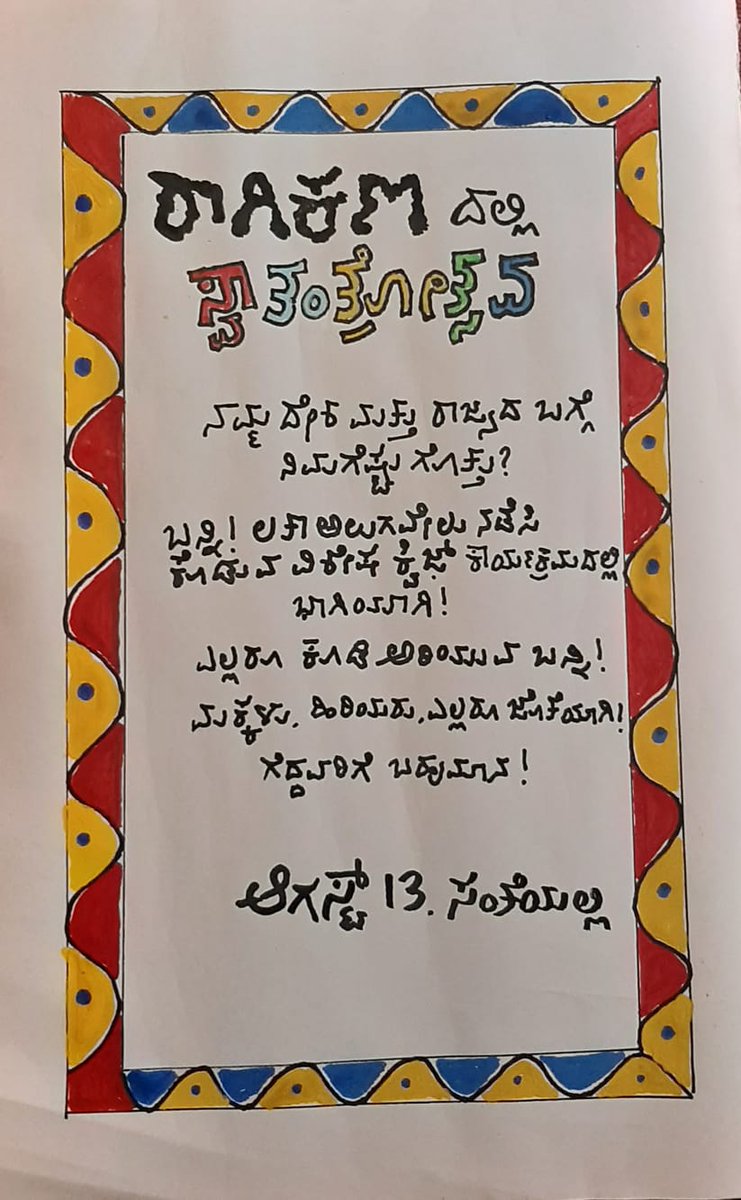 ರಾಗಿಕಣ ದಲ್ಲಿ
ಸ್ವಾತಂತ್ರೋತ್ಸವ
ನಮ್ಮ ದೇಶ ಮತ್ತು ರಾಜ್ಯದ ಬಗ್ಗೆ
ನಿಮಗೆಷ್ಟು ಗೊತ್ತು?
ಬನ್ನಿ! ಲತಾ ಅಲುಗವೇಲು ನಡೆಸಿ
ಕೊಡುವ ವಿಶೇಷ ಕ್ವಿಜ್ ಕಾರ್ಯಕ್ರಮದಲ್ಲಿ
ಭಾಗಿಯಾಗಿ!
ಎಲ್ಲರೂ ಕೂಡಿ ಅರಿಯುವ ಬನ್ನಿ!
ಮಕ್ಕಳು, ಹಿರಿಯರು, ಎಲ್ಲರೂ ಜೊತೆಯಾಗಿ!
ಗೆದ್ದವರಿಗೆ ಬಹುಮಾನ!
ಆಗಸ್ಟ್ 13. ಸಂತೆಯಲ್ಲಿ